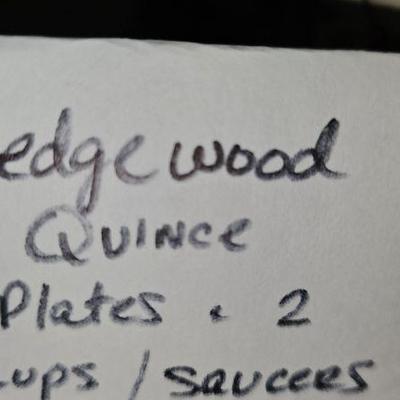 edgewood
Quince
Plates . 2
ups / saucees